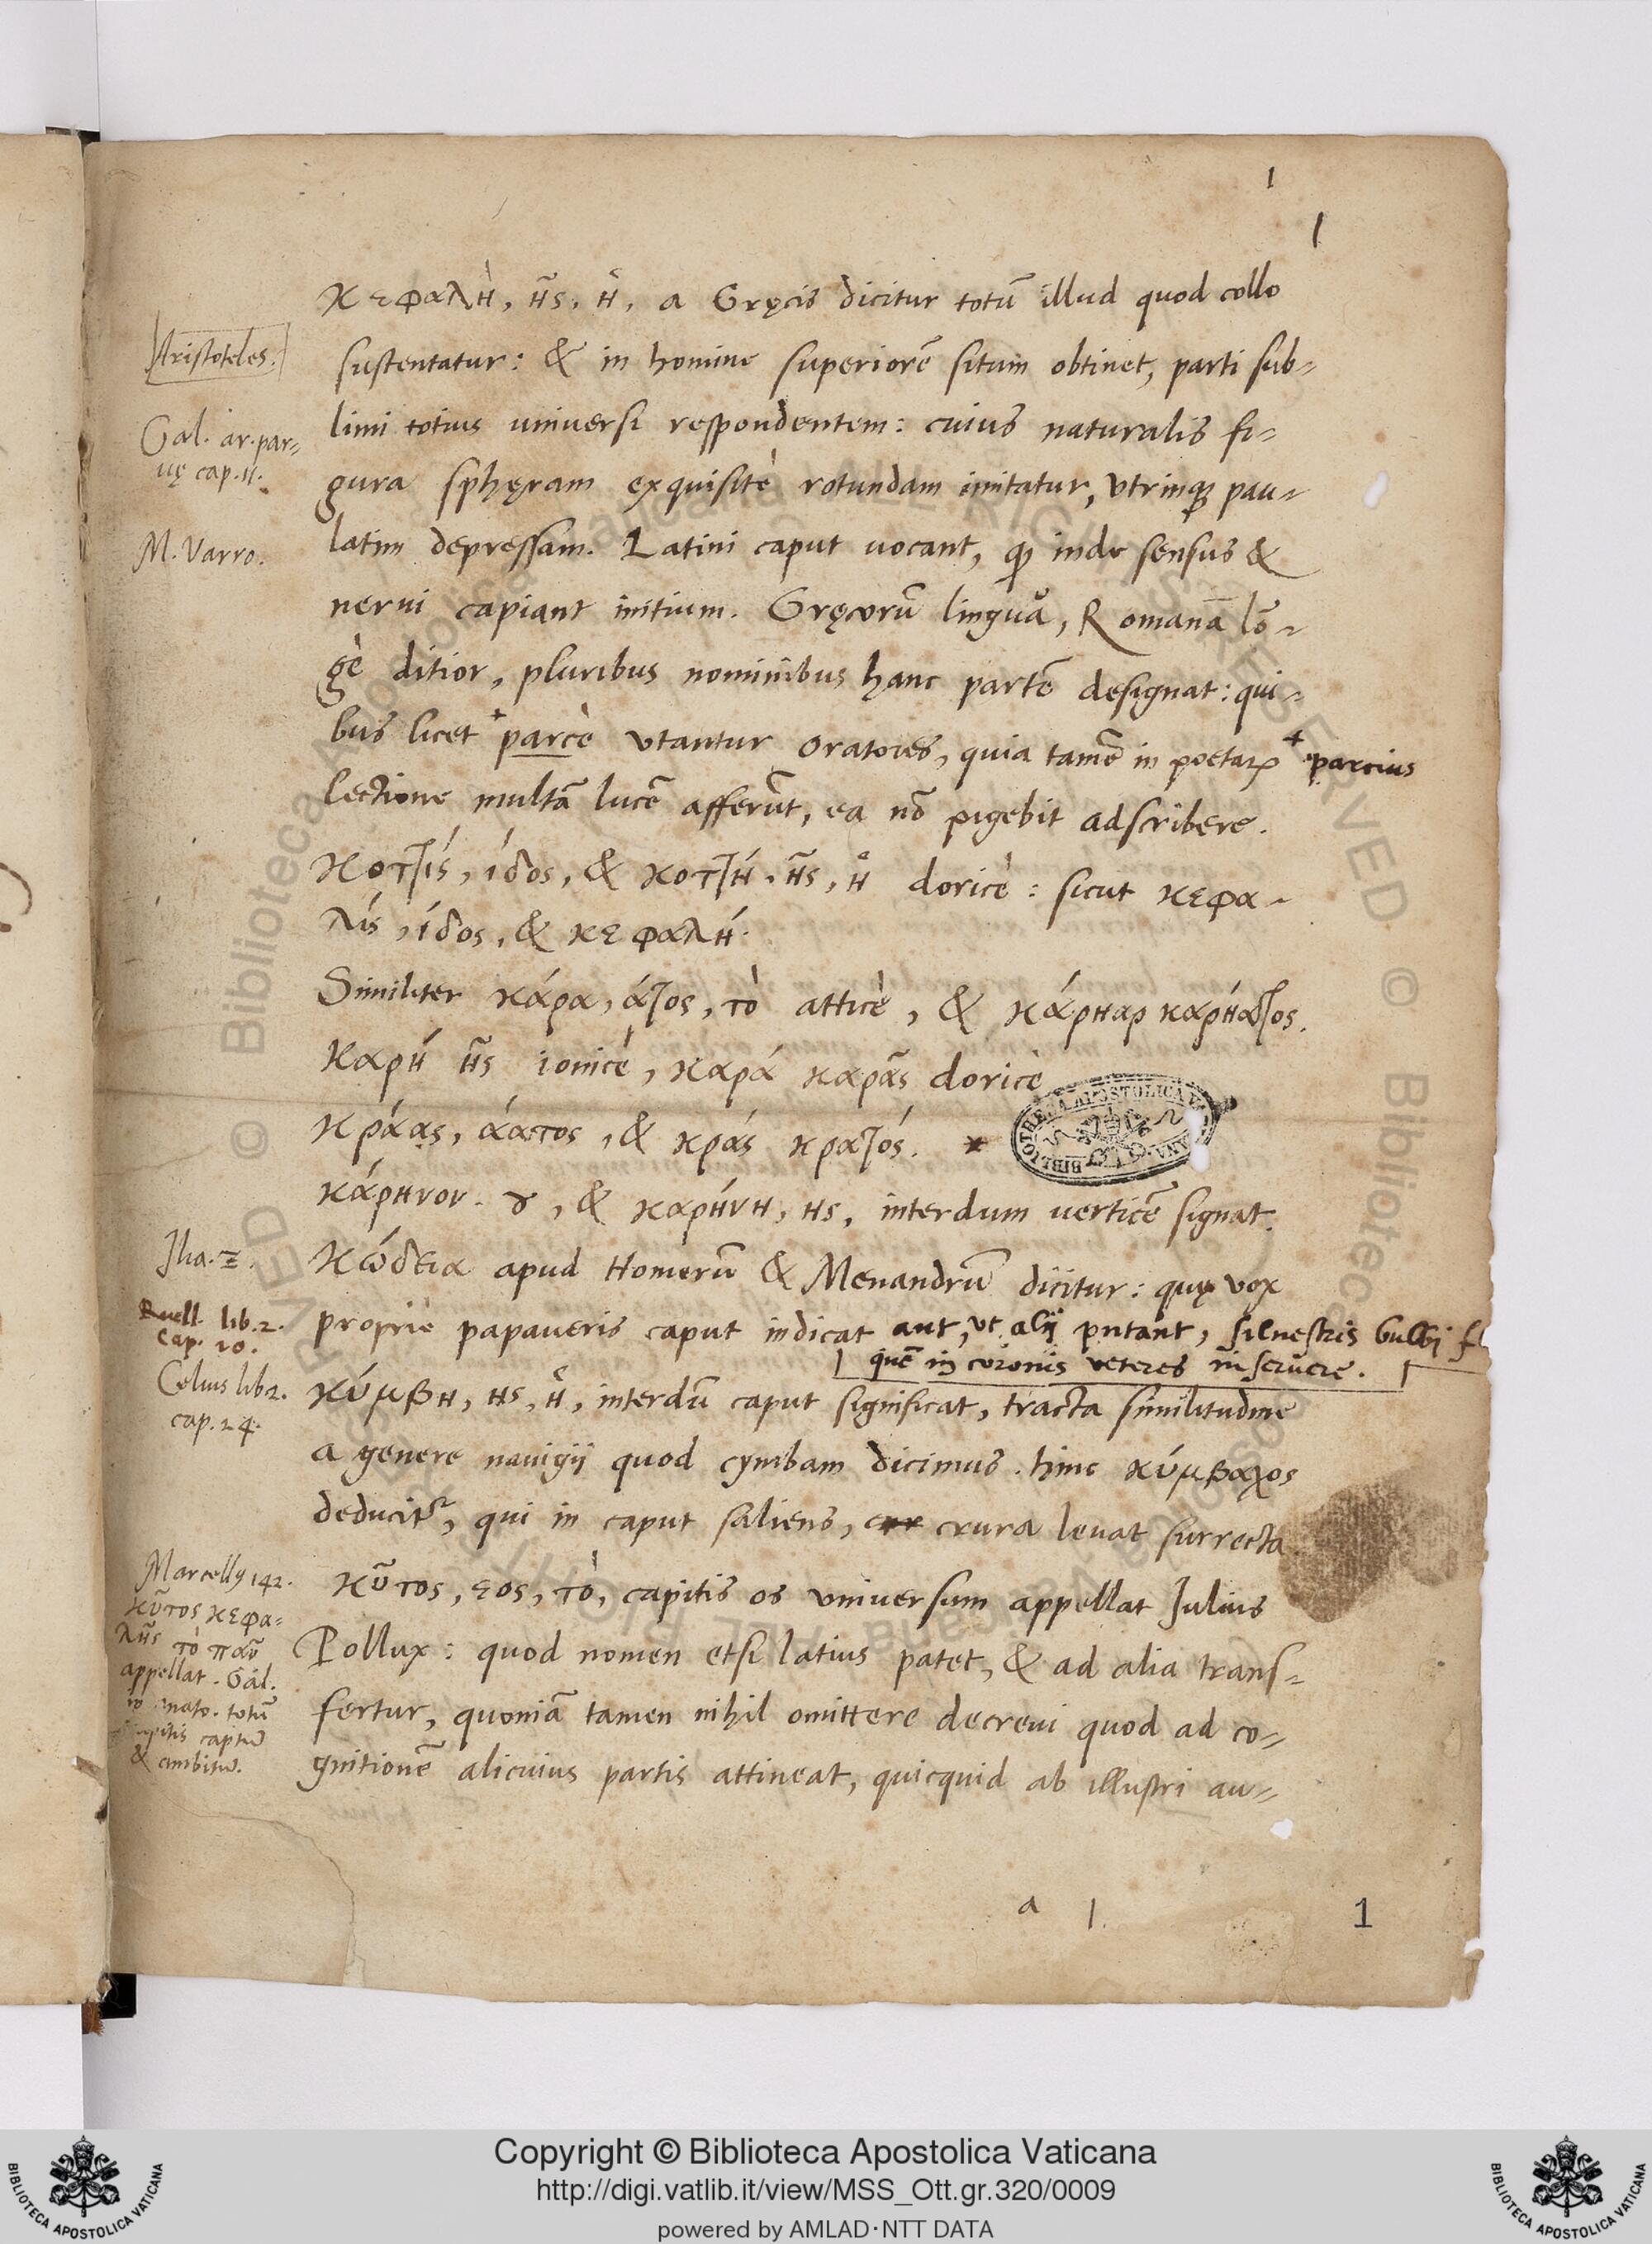 1
1
κεφαλὴ, ῆς, ἡ, a Gręcis dicitur totū illud quod collo
Aristoteles.
sustentatur: & in homine superiorē situm obtinet, parti sub=
Gal. ar. par=
uę cap. 11.
limi totius uniuersi respondentem: cuius naturalis fi=
gura sphęram exquisitè rotundam imitatur, vtrinq; pau=
M. Varro.
latim depressam. Latini caput uocant, q inde sensus &
nerui capiant initium. Gręcorū linguâ, Romanā lō=
gè ditior, pluribus nominibus hanc partē designat: qui=
bus licet + parcè vtantur oratores, quia tamē in poetarꝝ + parcius
lectione multā lucē afferūt, ea nō pigebit adscribere.
κοττὶς, ίδος, & κοττή, ῆς, ἡ doricè: sicut κεφα=
λίς, ίδος, & κεφαλή.
Similiter κάρα, άτος, τὸ atticè, & κάρηαρ καρήατος.
καρή ῆς ionicè, καρά καρᾶς doricè
κράας, άατος, & κράς κρατός. *
κάρηνον. ȣ, & καρήνη, ης, interdum uerticē signat.
Ilia. Ξ.
κώδεια apud Homerū & Menandrū dicitur: quę vox
Ruell. lib. 2.
cap. 10.
propriè papaueris caput indicat aut, vt alij putant, siluestris bulbi
quē in coronis veteres inseruere.
Celius lib 2.
cap. 24.
κύμβη, ης, ἡ, interdū caput significat, tracta similitudine
a genere nauigij quod cymbam dicimus. hinc κύμβαχος
deducitr, qui in caput saliens, crura leuat surrecta
Marcellus 142.
κῦτος κεφα=
λῆς τὸ πᾶν
appellat. Gal.
anato. totū
capitis captū
& ambitū.
κῦτος, εος, τὸ, capitis os vniuersum appellat Julius
Pollux: quod nomen etsi latius patet, & ad alia trans=
fertur, quoniā tamen nihil omittere decreui quod ad co=
gnitionē alicuius partis attineat, quicquid ab illustri au=
a 1.
1
Copyright © Biblioteca Apostolica Vaticana
http://digi.vatlib.it/view/MSS_Ott.gr.320/0009
powered by AMLAD·NTT DATA
BIBLIOTECA APOSTOLICA VATICANA
BIBLIOTECA APOSTOLICA VATICANA